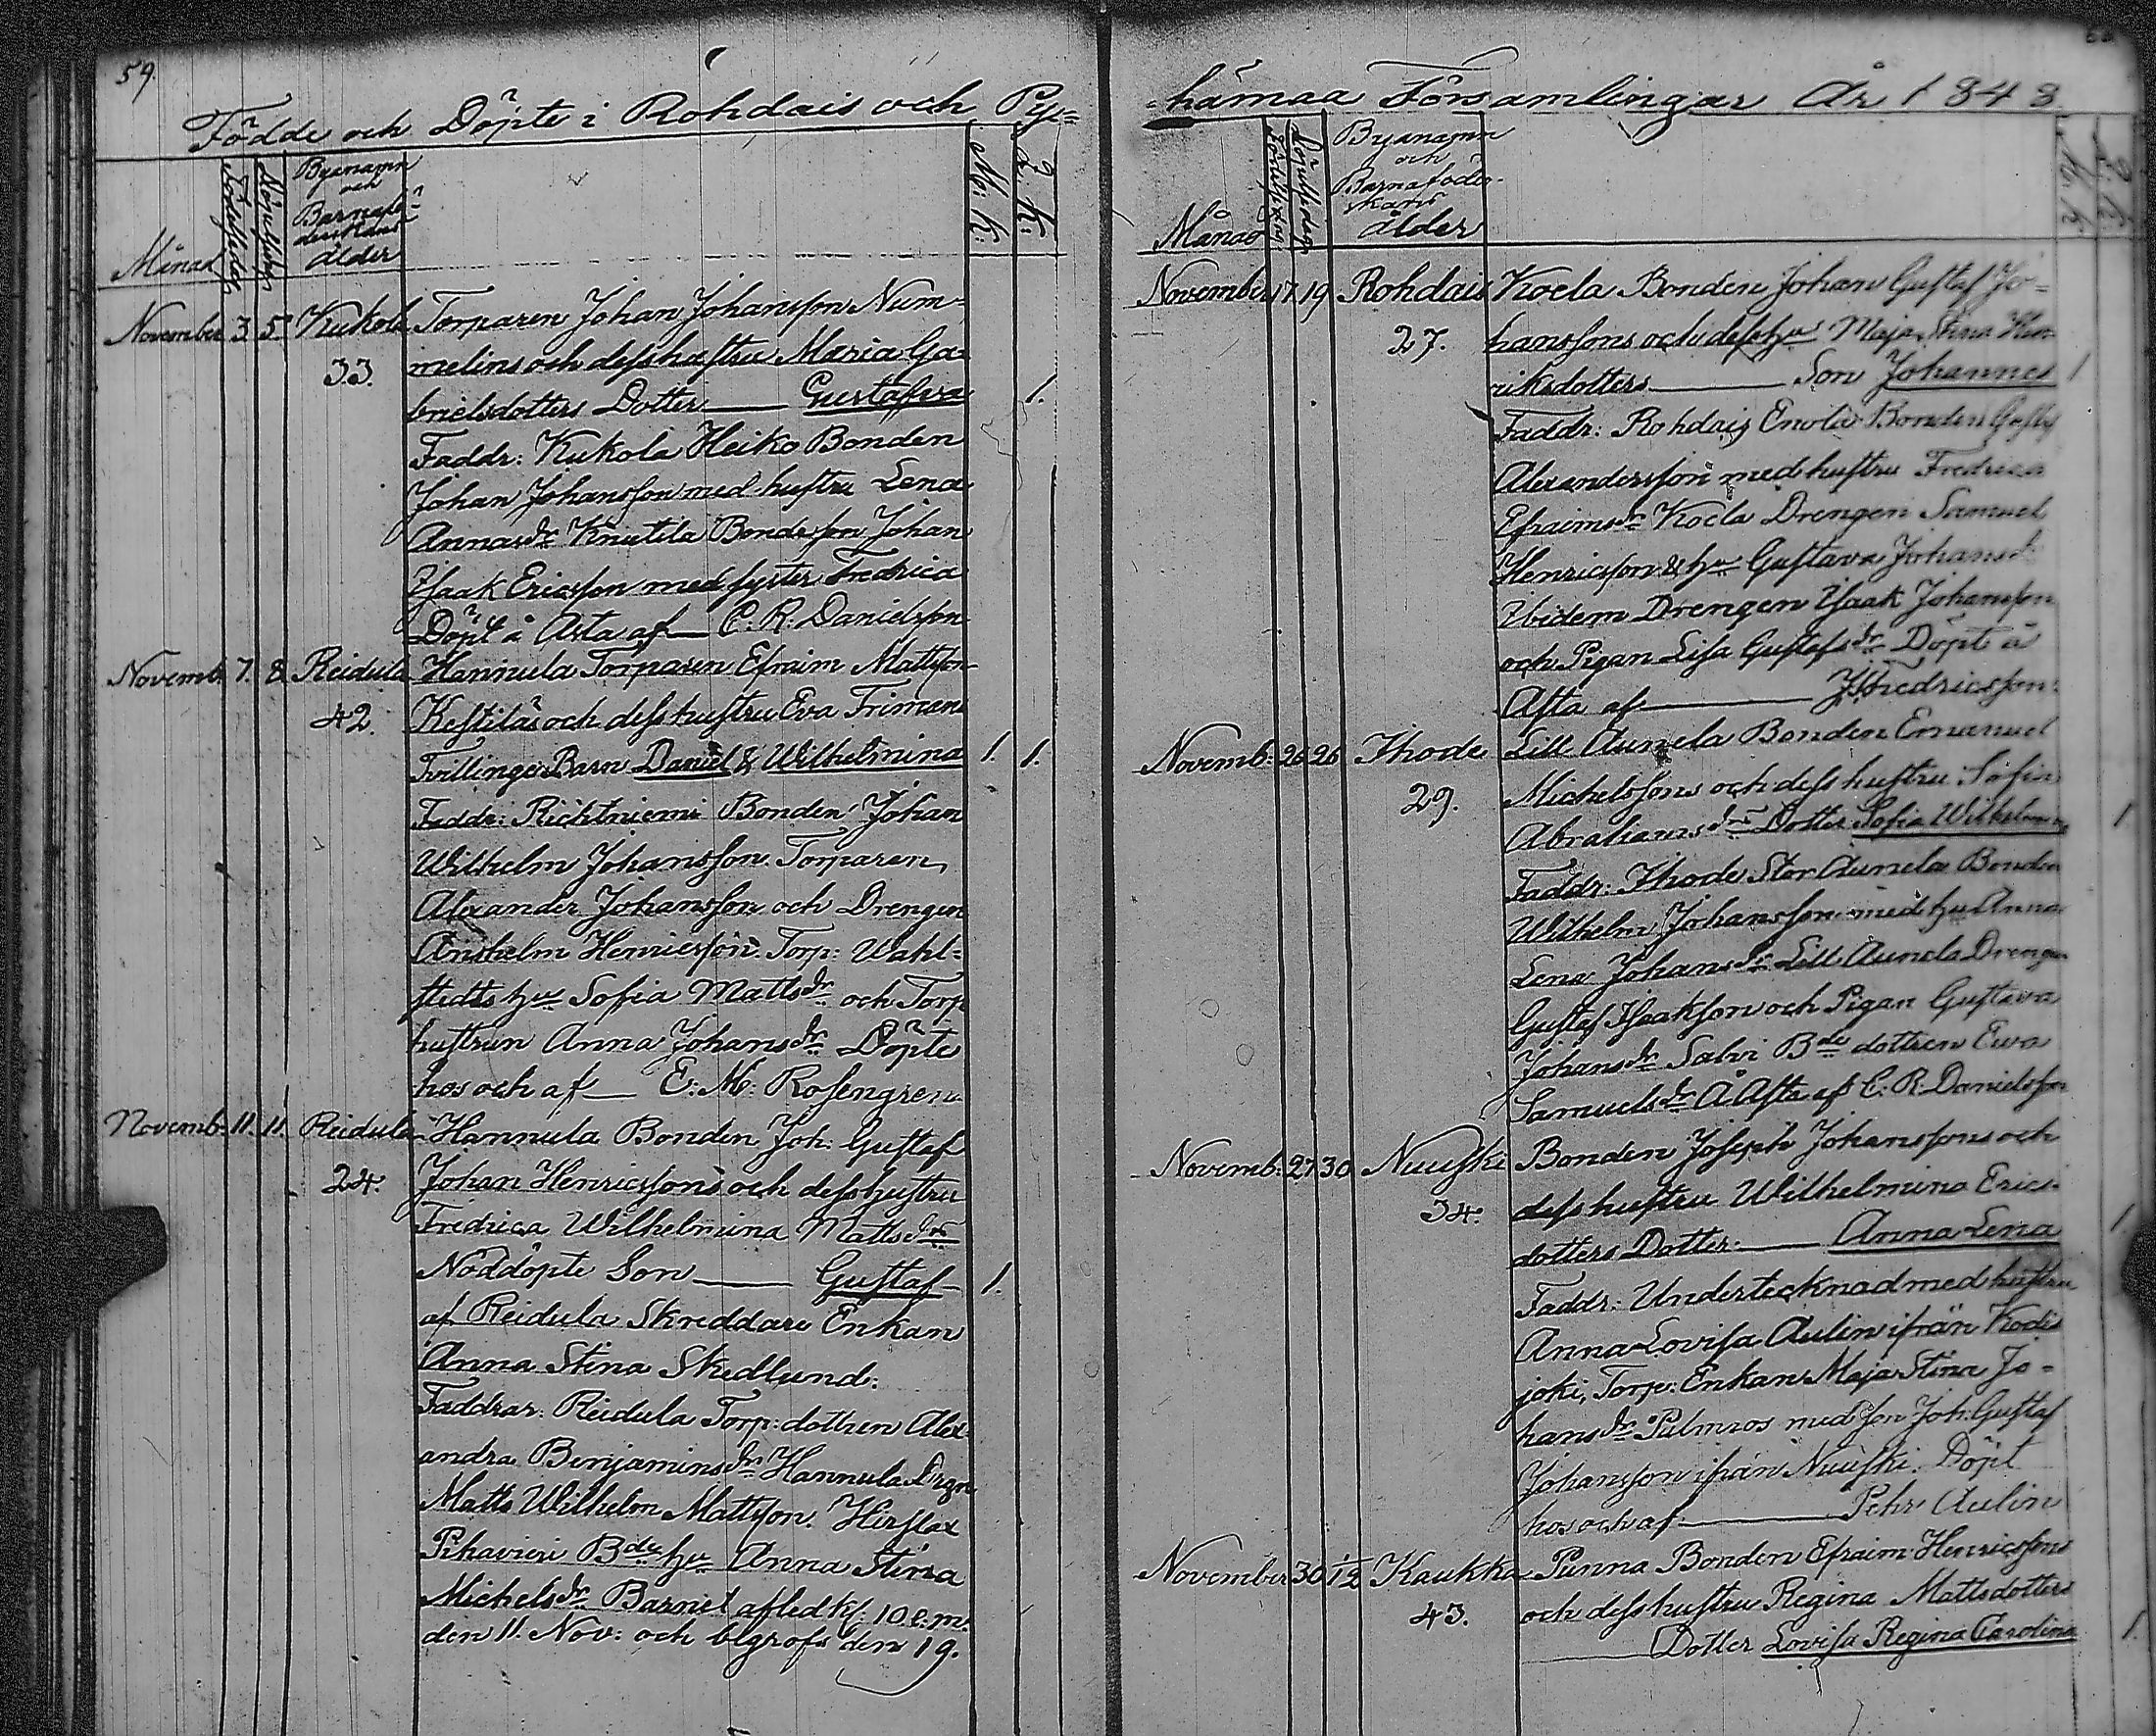 59.
Födde och Döpte i Rohdais och Py=
Månad
Födelsedag
Döpelsedag
Byanamn
och
Barnafö=
derskans
ålder
M: K:
Q: K:
November 3. 5. Kukola Torparen Johan Johansson Num=
33. melins och dess hustru Maria Ga=
brielsdotters Dotter — Gustafva 1.
Faddr: Kukola Heiko Bonden
Johan Johansson med hustru Lena
Annasdr Knutila Bondesson Johan
Isaak Ericsson med syster Fredrica
Döpt å Asta af — C. R. Danielsson
Novemb. 7. 8 Reidula Hannula Torparen Efraim Mattsson
42. Kestiläs och dess hustru Eva Frimans
Tvillinge Barn Daniel & Wilhelmina 1. 1.
Faddr: Richtniemi Bonden Johan
Wilhelm Johansson. Torparen
Alexander Johansson och Drengen
Anshelm Henricsson. Torp: Wahl=
stedts hu Sofia Mattsdr och Torp
hustrun Anna Johansdr Döpte
hos och af — E. M. Rosengren
Novemb. 11. 11. Reidula Hannula Bonden Joh: Gustaf
24. Johan Henricssons och dess hustru
Fredrica Wilhelmina Mattsdrs
Nöddöpte Son — Gustaf 1.
af Reidula Skreddare Enkan
Anna Stina Skedlund.
Faddrar: Reidula Torp: dottren Alex=
andra Benjaminsdr Hannula Drgn
Matts Wilhelm Mattsson. Hirslax
Pihavieri Bde hu Anna Stina
Michelsdr Barnet afled kl: 10 e. m.
den 11. Nov: och begrofs den 19.
=hämaa Församlingar År 1848
Månad
Födelsedag
Döpelsedag
Byanamn
och
Barnaföder-
skans
ålder
M: K:
Q: K:
November 17. 19 Rohdais Kocla Bonden Johan Gustaf Jo=
27. hanssons och dess hu Maja Stina Hen
riksdotters — Son Johannes 1
Faddr: Rohdais Enola Bonden Gustf
Alexandersson med hustru Fredrica
Efraimsdr Kocla Drengen Samuel
Henricsson & hu Gustava Johansdr
Ibidem Drengen Isaak Johansson
och Pigan Lisa Gustafsdr Döpt å
Asta af — Fredricsson.
Novemb: 26 26 Ihode Lill Aunela Bonden Emanuel
29. Michelssons och dess hustru Sofia
Abrahamsdrs Dotter Sofia Wilhelmina 1
Faddr: Ihode Stor Aunela Bonden
Wilhelm Johansson med hu Anna
Lena Johansdr Lill Aunela Drengen
Gustaf Isaksson och Pigan Gustava
Johansdr Salvi Bde dottren Eva
Samuelsdr Å Asta af C. R. Danielsson
Novemb: 27 30 Nuuski Bonden Joseph Johanssons och
34. dess hustru Wilhelmina Erics=
dotters Dotter — Anna Lena 1
Faddr: Undertecknad med hustru
Anna Lovisa Aulin ifrån Kodis
joki, Torp: Enkan Maja Stina Jo=
hansdr Palmros med son Joh: Gustaf
Johansson ifrån Nuuski. Döpt
hos och af — Pehr Aulin
November 30 1/12 Kaukka Punna Bonden Efraim Henricssons
43. och dess hustru Regina Mattsdotters
Dotter Lovisa Regina Carolina 1.